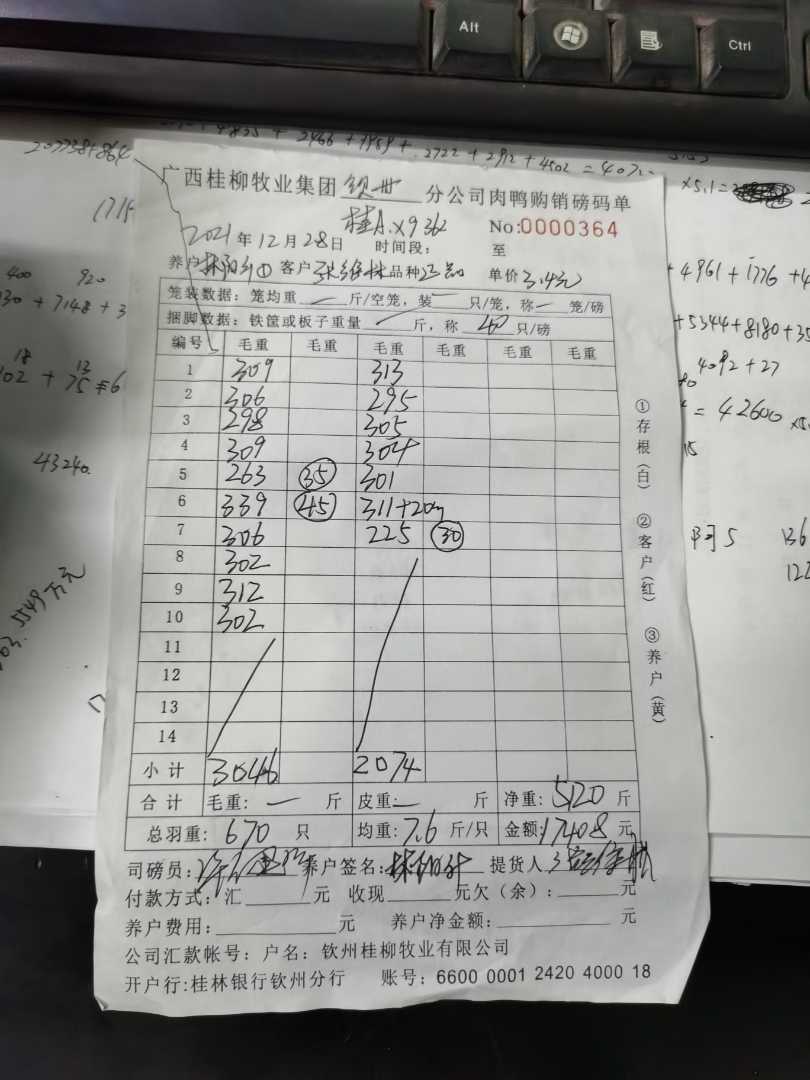 Alt
Ctrl
+ 4835 + 2466 + 1959 + 2722 + 292 + 4502 =
207738+864
×5.1=
广西桂柳牧业集团 钦州 分公司肉鸭购销磅码单
桂A.X9362 No:0000364
2021 年 12 月 28 日 时间段: 至
养户 ① 客户 品种 单价 3.4元
笼装数据: 笼均重 一 斤/空笼, 装 一 只/笼, 称 一 笼/磅
捆脚数据: 铁筐或板子重量 斤, 称 40 只/磅
编号 毛重 毛重 毛重 毛重 毛重 毛重
1 309 313
2 306 295
3 298 305
4 309 304
5 263 35 301
6 339 45 311+20
7 306 225 30
8 302
9 312
10 302
11
12
13
14
小计 3046 2074
合计 毛重: 一 斤 皮重: 一 斤 净重: 5120 斤
总羽重: 670 只 均重: 7.6 斤/只 金额: 17408 元
司磅员: 养户签名: 提货人
付款方式: 汇 元 收现 元欠(余): 元
养户费用: 元 养户净金额: 元
公司汇款帐号: 户名: 钦州桂柳牧业有限公司
开户行:桂林银行钦州分行 账号: 6600 0001 2420 4000 18
①存根(白) ②客户(红) ③养户(黄)
400 920
+ 7148 + 3
18 13
+ 75
43240.
5549万元
+ 4961 + 1776 +
+5344+8180+35
4092 + 27
= 42600